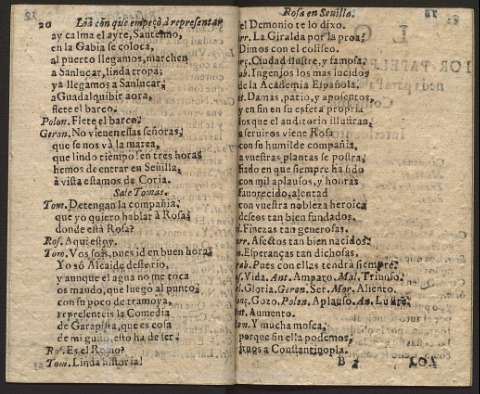 20 Loa con que empeçò a representar
ay calma el ayre, Santelmo,
en la Gabia se coloca,
al puerto llegamos, marchen
a Sanlucar, linda tropa;
ya llegamos a Sanlucar,
a Guadalquibir aora,
flete el barco.
Polon. Flete el barco.
Geron. No vienen essas señoras,
que se nos và la marea,
que lindo tiempo! en tres horas
hemos de entrar en Seuilla,
à vista estamos de Coria.
Sale Tomas.
Tom. Detengan la compañia,
que yo quiero hablar à Rosa;
donde està Rosa?
Ros. Aqui estoy.
Tom. Vos sois, pues id en buen hora;
Yo sò Alcalde desterio,
y aunque el agua no me toca
os mando, que luego al punto,
con su poco de tramoya,
representeis la Comedia
de Garapiña, que es cosa
de mi gusto, esto ha de ser.
Ros. Es el Romo?
Tom. Linda historia!
Rosa en Seuilla.
el Demonio te lo dixo.
La Giralda por la proa.
Dimos con el coliseo.
Ciudad ilustre, y famosa.
Ingenios los mas lucidos
de la Academia Española.
Damas, patio, y aposentos,
y en fin en su esfera propria
los que el auditorio illustran,
a seruiros viene Rosa
con su humilde compañia,
a vuestras plantas se postra,
fiado en que siempre ha sido
con mil aplausos, y honras
fauorecido, alentad
con vuestra nobleza heroica
deseos tan bien fundados.
Finezas tan generosas.
Afectos tan bien nacidos.
Esperanças tan dichosas.
Pues con ellas tendrà siempre.
Vida. Ant. Amparo. Mal. Triunfo.
Gloria. Geron. Ser. Mor. Aliento.
Gozo. Polon. Aplauso. An. Lustre.
Aumento.
Y mucha mosca,
porque sin ella podemos,
irnos a Constantinopla.
B